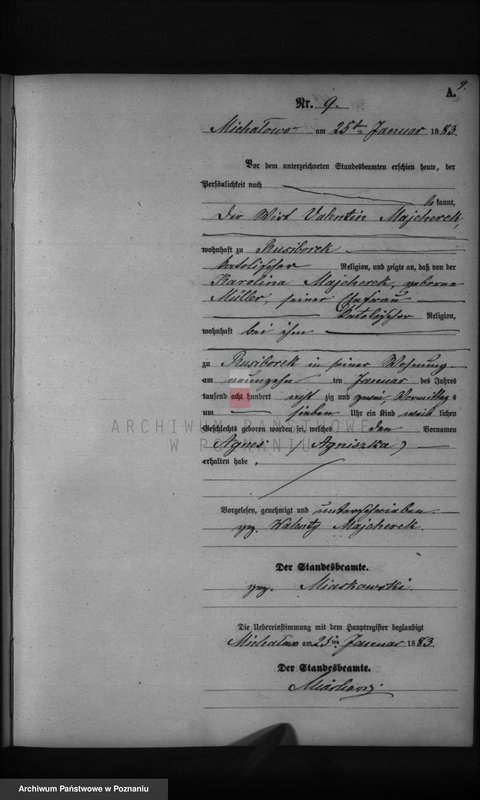 9.
A.
Nr. 9.
Michałowo am 25ten Januar 1883.
Vor dem unterzeichneten Standesbeamten erschien heute, der
Persönlichkeit nach
bekannt,
Der Wirt Valentin Majcherek,
wohnhaft zu Rusiborek
katolischer Religion, und zeigte an, daß von der
Karolina Majcherek, geborene
Müller, seiner Ehefrau
katolischer Religion,
wohnhaft bei ihm
zu Rusiborek in seiner Wohnung
am neunzehn ten Januar des Jahres
tausend acht hundert acht zig und Vormittags
um sieben Uhr ein Kind weib lichen
Geschlechts geboren worden sei, welches den Vornamen
Agnes (Agniszka)
erhalten habe.
Vorgelesen, genehmigt und unterschrieben.
gez. Walenty Majcherek.
Der Standesbeamte.
gez. Miaskowski.
Die Uebereinstimmung mit dem Hauptregister beglaubigt
Michałowo am 25ten Januar 1883.
Der Standesbeamte.
ARCHIWUM PAŃSTWOWE
W POZNANIU
Archiwum Państwowe w Poznaniu